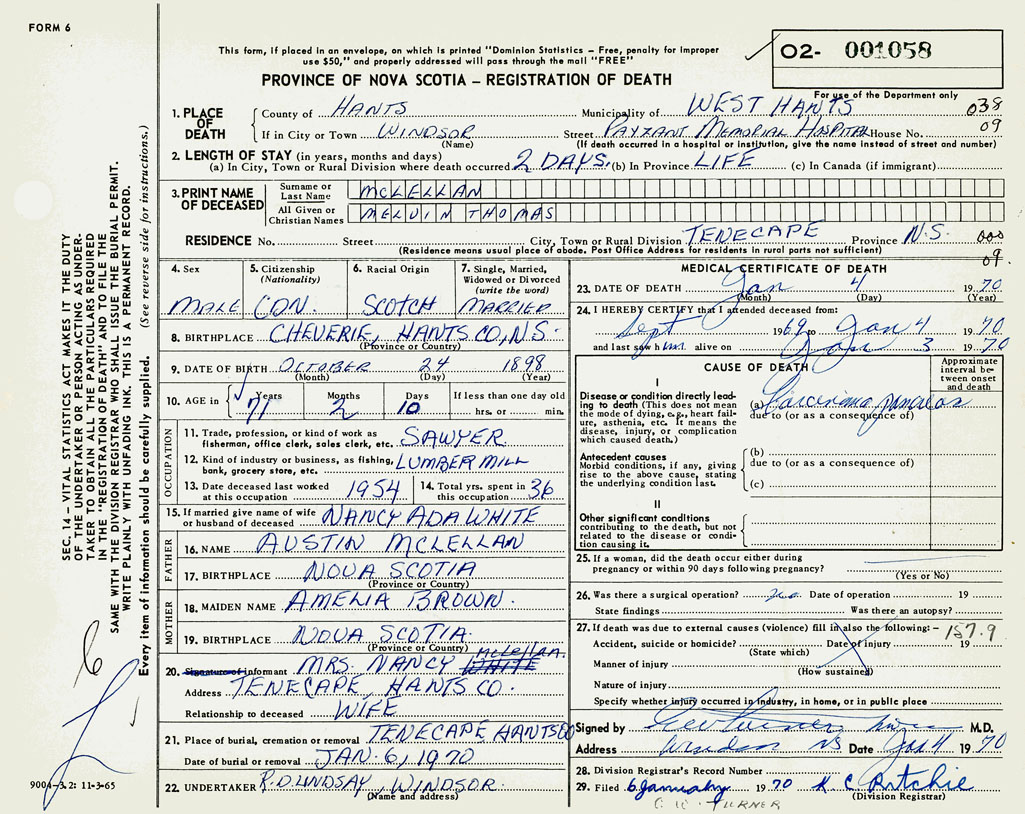 FORM 6
This form, if placed in an envelope, on which is printed "Dominion Statistics – Free, penalty for improper
use $50," and properly addressed will pass through the mail "FREE"
02- 001058
PROVINCE OF NOVA SCOTIA – REGISTRATION OF DEATH
For use of the Department only
1. PLACE OF DEATH County of HANTS Municipality of WEST HANTS 038
If in City or Town WINDSOR Street PAYZANT MEMORIAL HOSPITAL House No. 09
(Name) (If death occurred in a hospital or institution, give the name instead of street and number)
2. LENGTH OF STAY (in years, months and days)
(a) In City, Town or Rural Division where death occurred 2 DAYS. (b) In Province LIFE (c) In Canada (if immigrant)
3. PRINT NAME OF DECEASED Surname or Last Name MCLELLAN
All Given or Christian Names MELVIN THOMAS
RESIDENCE No. Street City, Town or Rural Division TENECAPE Province N.S. 000
(Residence means usual place of abode. Post Office Address for residents in rural parts not sufficient) 09.
4. Sex 5. Citizenship (Nationality) 6. Racial Origin 7. Single, Married, Widowed or Divorced (write the word)
MALE CDN. SCOTCH MARRIED
8. BIRTHPLACE CHEVERIE, HANTS CO, N.S.
(Province or Country)
9. DATE OF BIRTH OCTOBER 24 1898
(Month) (Day) (Year)
10. AGE in Years Months Days If less than one day old
71 2 10 hrs. or min.
OCCUPATION
11. Trade, profession, or kind of work as
fisherman, office clerk, sales clerk, etc. SAWYER
12. Kind of industry or business, as fishing,
bank, grocery store, etc. LUMBER MILL
13. Date deceased last worked at this occupation 1954 14. Total yrs. spent in this occupation 36
15. If married give name of wife
or husband of deceased NANCY ADA WHITE
FATHER
16. NAME AUSTIN MCLELLAN
17. BIRTHPLACE NOVA SCOTIA
(Province or Country)
MOTHER
18. MAIDEN NAME AMELIA BROWN.
19. BIRTHPLACE NOVA SCOTIA.
(Province or Country)
20. Signature of informant MRS. NANCY WHITE McLellan.
Address TENECAPE, HANTS CO.
Relationship to deceased WIFE
21. Place of burial, cremation or removal TENECAPE HANTS CO
Date of burial or removal JAN. 6, 1970
22. UNDERTAKER R.D. LINDSAY, WINDSOR.
(Name and address)
MEDICAL CERTIFICATE OF DEATH
23. DATE OF DEATH Jan 4 1970
(Month) (Day) (Year)
24. I HEREBY CERTIFY that I attended deceased from:
Sept 1969 to Jan 4 1970
and last saw him alive on Jan 3 1970
CAUSE OF DEATH
Approximate interval between onset and death
I
Disease or condition directly leading
to death (This does not mean
the mode of dying, e.g., heart failure,
asthenia, etc. It means the
disease, injury, or complication
which caused death.)
(a) Carcinoma pancreas
due to (or as a consequence of)
Antecedent causes
Morbid conditions, if any, giving
rise to the above cause, stating
the underlying condition last.
(b)
due to (or as a consequence of)
(c)
II
Other significant conditions
contributing to the death, but not
related to the disease or condition
causing it.
25. If a woman, did the death occur either during
pregnancy or within 90 days following pregnancy?
(Yes or No)
26. Was there a surgical operation? no Date of operation 19
State findings Was there an autopsy?
27. If death was due to external causes (violence) fill in also the following: – 157.9
Accident, suicide or homicide? Date of injury 19
(State which)
Manner of injury
(How sustained)
Nature of injury
Specify whether injury occurred in industry, home, or in public place
Signed by M.D.
Address Windsor NS Date Jan 4 1970
28. Division Registrar's Record Number
29. Filed 6 January 1970 K C Ritchie
(Division Registrar)
TURNER
SEC. 14 – VITAL STATISTICS ACT MAKES IT THE DUTY
OF THE UNDERTAKER OR PERSON ACTING AS UNDERTAKER
TO OBTAIN ALL THE PARTICULARS REQUIRED
IN THE "REGISTRATION OF DEATH" AND TO FILE THE
SAME WITH THE DIVISION REGISTRAR WHO SHALL ISSUE THE BURIAL PERMIT.
WRITE PLAINLY WITH UNFADING INK. THIS IS A PERMANENT RECORD.
Every item of information should be carefully supplied. (See reverse side for instructions.)
6
9004–3.2: 11-3-65